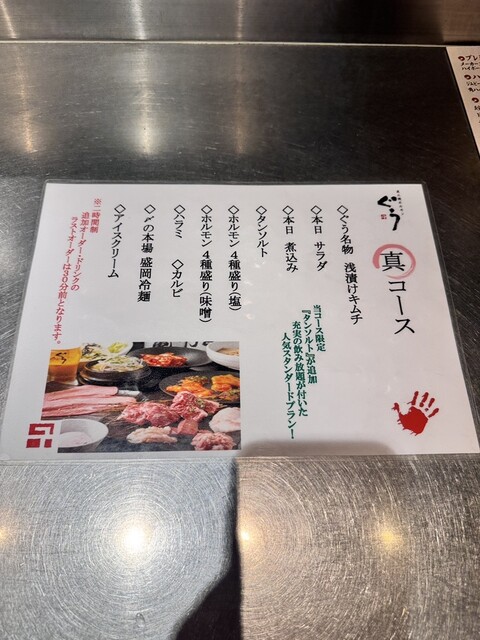 ぐう
真コース
◇ぐう名物 浅漬けキムチ
◇本日 サラダ
◇本日 煮込み
◇タンソルト
◇ホルモン４種盛り(塩)
◇ホルモン４種盛り(味噌)
◇ハラミ ◇カルビ
◇〆の本場 盛岡冷麺
◇アイスクリーム
※二時間制
追加オーダー・ドリンクの
ラストオーダーは30分前となります。
当コース限定
『タンソルト』が追加
充実の飲み放題が付いた
人気スタンダードプラン！
ぐう